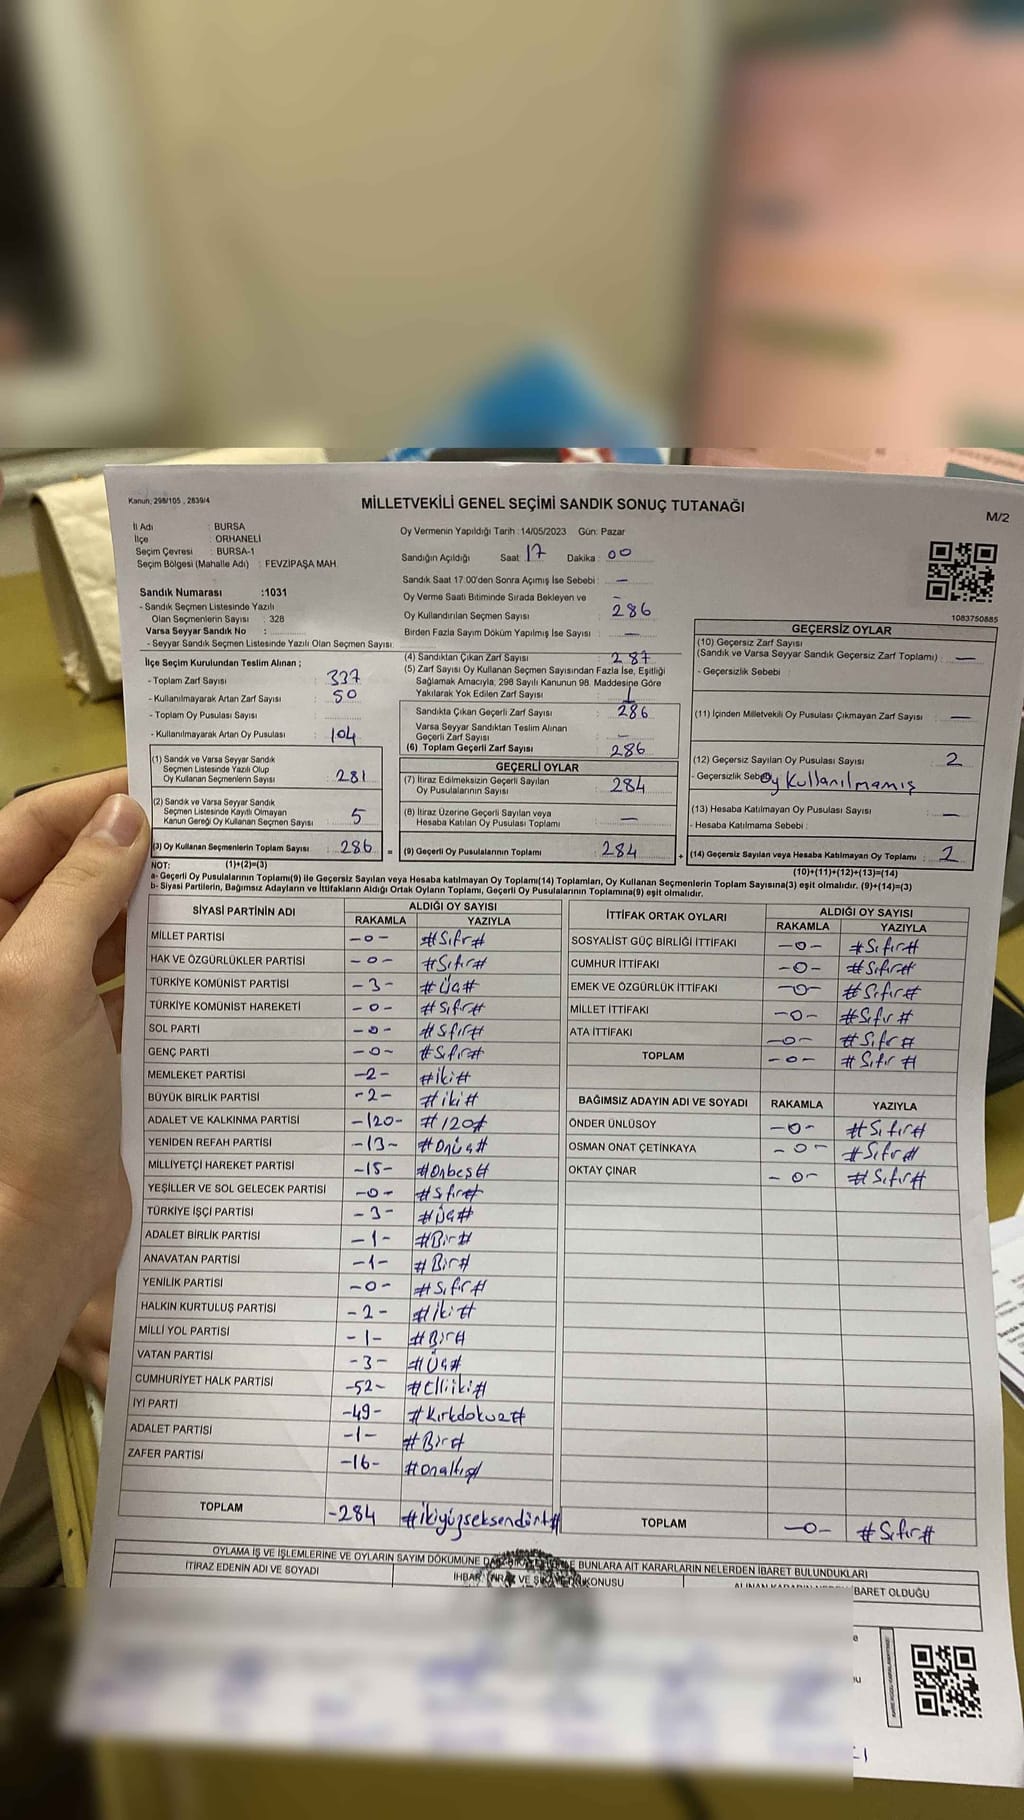 Kanun: 298/105 , 2839/4
MİLLETVEKİLİ GENEL SEÇİMİ SANDIK SONUÇ TUTANAĞI
M/2
İl Adı : BURSA
İlçe : ORHANELİ
Seçim Çevresi : BURSA-1
Seçim Bölgesi (Mahalle Adı) : FEVZİPAŞA MAH.
Sandık Numarası :1031
- Sandık Seçmen Listesinde Yazılı
Olan Seçmenlerin Sayısı : 328
Varsa Seyyar Sandık No :
- Seyyar Sandık Seçmen Listesinde Yazılı Olan Seçmen Sayısı:
İlçe Seçim Kurulundan Teslim Alınan ;
- Toplam Zarf Sayısı : 337
- Kullanılmayarak Artan Zarf Sayısı : 50
- Toplam Oy Pusulası Sayısı :
- Kullanılmayarak Artan Oy Pusulası : 104
(1) Sandık ve Varsa Seyyar Sandık
Seçmen Listesinde Yazılı Olup
Oy Kullanan Seçmenlerin Sayısı : 281
(2) Sandık ve Varsa Seyyar Sandık
Seçmen Listesinde Kayıtlı Olmayan
Kanun Gereği Oy Kullanan Seçmen Sayısı : 5
(3) Oy Kullanan Seçmenlerin Toplam Sayısı : 286
Oy Vermenin Yapıldığı Tarih : 14/05/2023 Gün: Pazar
Sandığın Açıldığı Saat : 17 Dakika : 00
Sandık Saat 17:00'den Sonra Açılmış İse Sebebi : —
Oy Verme Saati Bitiminde Sırada Bekleyen ve —
Oy Kullandırılan Seçmen Sayısı : 286
Birden Fazla Sayım Döküm Yapılmış İse Sayısı : —
(4) Sandıktan Çıkan Zarf Sayısı : 287
(5) Zarf Sayısı Oy Kullanan Seçmen Sayısından Fazla İse, Eşitliği
Sağlamak Amacıyla, 298 Sayılı Kanunun 98. Maddesine Göre
Yakılarak Yok Edilen Zarf Sayısı : 1
Sandıkta Çıkan Geçerli Zarf Sayısı : 286
Varsa Seyyar Sandıktan Teslim Alınan
Geçerli Zarf Sayısı : —
(6) Toplam Geçerli Zarf Sayısı : 286
GEÇERLİ OYLAR
(7) İtiraz Edilmeksizin Geçerli Sayılan
Oy Pusulalarının Sayısı : 284
(8) İtiraz Üzerine Geçerli Sayılan veya
Hesaba Katılan Oy Pusulası Toplamı : —
= (9) Geçerli Oy Pusulalarının Toplamı : 284
1083750885
GEÇERSİZ OYLAR
(10) Geçersiz Zarf Sayısı
(Sandık ve Varsa Seyyar Sandık Geçersiz Zarf Toplamı) : —
- Geçersizlik Sebebi :
(11) İçinden Milletvekili Oy Pusulası Çıkmayan Zarf Sayısı : —
(12) Geçersiz Sayılan Oy Pusulası Sayısı : 2
- Geçersizlik Sebebi : Oy Kullanılmamış
(13) Hesaba Katılmayan Oy Pusulası Sayısı : —
- Hesaba Katılmama Sebebi :
+ (14) Geçersiz Sayılan veya Hesaba Katılmayan Oy Pusulası Toplamı : 2
NOT: (1)+(2)=(3) (10)+(11)+(12)+(13)=(14)
a- Geçerli Oy Pusulaları Toplamı(9) ile Geçersiz Sayılan veya Hesaba katılmayan Oy Toplamı(14) Toplamları, Oy Kullanan Seçmenlerin Toplam Sayısına(3) eşit olmalıdır. (9)+(14)=(3)
b- Siyasi Partilerin, Bağımsız Adayların ve İttifakların Aldığı Ortak Oyların Toplamı, Geçerli Oy Pusulalarının Toplamına(9) eşit olmalıdır.
SİYASİ PARTİNİN ADI ALDIĞI OY SAYISI
RAKAMLA YAZIYLA
MİLLET PARTİSİ -0- #Sıfır#
HAK VE ÖZGÜRLÜKLER PARTİSİ -0- #Sıfır#
TÜRKİYE KOMÜNİST PARTİSİ -3- #Üç#
TÜRKİYE KOMÜNİST HAREKETİ -0- #Sıfır#
SOL PARTİ -0- #Sıfır#
GENÇ PARTİ -0- #Sıfır#
MEMLEKET PARTİSİ -2- #İki#
BÜYÜK BİRLİK PARTİSİ -2- #iki#
ADALET VE KALKINMA PARTİSİ -120- #120#
YENİDEN REFAH PARTİSİ -13- #Onüç#
MİLLİYETÇİ HAREKET PARTİSİ -15- #Onbeş#
YEŞİLLER VE SOL GELECEK PARTİSİ -0- #Sıfır#
TÜRKİYE İŞÇİ PARTİSİ -3- #Üç#
ADALET BİRLİK PARTİSİ -1- #Bir#
ANAVATAN PARTİSİ -1- #Bir#
YENİLİK PARTİSİ -0- #Sıfır#
HALKIN KURTULUŞ PARTİSİ -2- #İki#
MİLLİ YOL PARTİSİ -1- #Bir#
VATAN PARTİSİ -3- #Üç#
CUMHURİYET HALK PARTİSİ -52- #Elliiki#
İYİ PARTİ -49- #Kırkdokuz#
ADALET PARTİSİ -1- #Bir#
ZAFER PARTİSİ -16- #onaltı#
TOPLAM -284 #İkiyüzseksendört#
İTTİFAK ORTAK OYLARI ALDIĞI OY SAYISI
RAKAMLA YAZIYLA
SOSYALİST GÜÇ BİRLİĞİ İTTİFAKI -0- #Sıfır#
CUMHUR İTTİFAKI -0- #Sıfır#
EMEK VE ÖZGÜRLÜK İTTİFAKI -0- #Sıfır#
MİLLET İTTİFAKI -0- #Sıfır#
ATA İTTİFAKI -0- #Sıfır#
TOPLAM -0- #Sıfır#
BAĞIMSIZ ADAYIN ADI VE SOYADI RAKAMLA YAZIYLA
ÖNDER ÜNLÜSOY -0- #Sıfır#
OSMAN ONAT ÇETİNKAYA -0- #Sıfır#
OKTAY ÇINAR -0- #Sıfır#
TOPLAM -0- #Sıfır#
OYLAMA İŞ VE İŞLEMLERİNE VE OYLARIN SAYIM DÖKÜMÜNE BUNLARA AİT KARARLARIN NELERDEN İBARET BULUNDUKLARI
İTİRAZ EDENİN ADI VE SOYADI VE KONUSU İBARET OLDUĞU